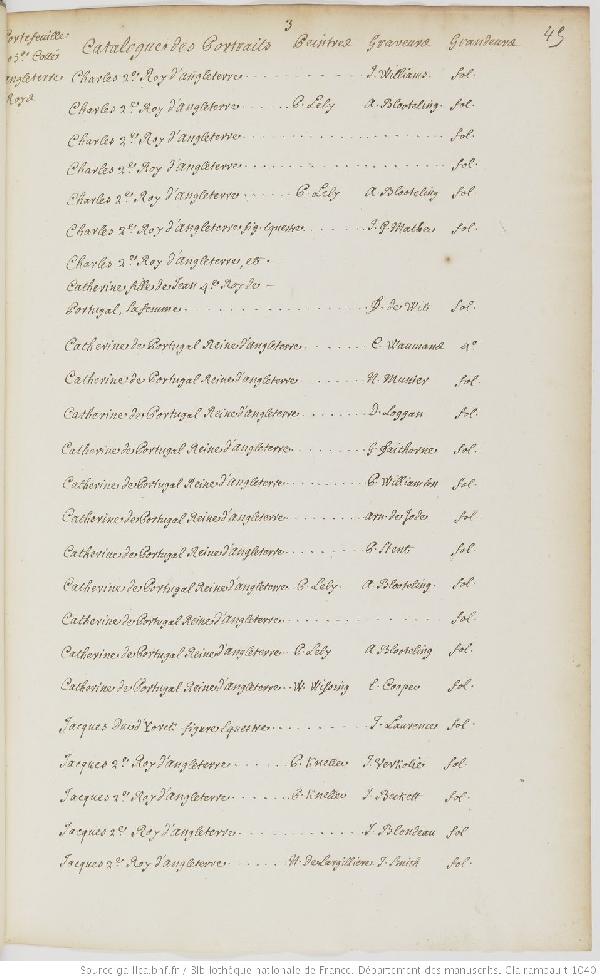 3
49
Portefeuille
Angleterre
Roya
Catalogue des Portraits Peintres Graveurs Grandeurs
Charles 2.e Roy d'angleterre J. Williams fol.
Charles 2.e Roy d'angleterre P. Lely A. Bloeteling fol.
Charles 2.e Roy d'angleterre fol.
Charles 2.e Roy d'angleterre fol.
Charles 2.e Roy d'angleterre P. Lely A. Bloeteling fol.
Charles 2.e Roy d'angleterre fig. Equestre fol.
Charles 2.e Roy d'angleterre, et
Catherine fille de Jean 4.e Roy de
Portugal, sa femme de Wit fol.
Catherine de Portugal Reine d'angleterre C. Waumans 4.o
Catherine de Portugal Reine d'angleterre N. Munier fol.
Catherine de Portugal Reine d'angleterre D. Loggan fol.
Catherine de Portugal Reine d'angleterre G. Faithorne fol.
Catherine de Portugal Reine d'angleterre P. Williamsen fol.
Catherine de Portugal Reine d'angleterre Arn. de Jode fol.
Catherine de Portugal Reine d'angleterre P. Stent fol.
Catherine de Portugal Reine d'angleterre P. Lely A. Bloeteling fol.
Catherine de Portugal Reine d'angleterre fol.
Catherine de Portugal Reine d'angleterre P. Lely A. Bloeteling fol.
Catherine de Portugal Reine d'angleterre W. Wissing E. Cooper fol.
Jacques Duc d'Yorck figure Equestre J. Laurence fol.
Jacques 2.e Roy d'angleterre G. Kneller J. Verkolie fol.
Jacques 2.e Roy d'angleterre G. Kneller J. Beckett fol.
Jacques 2.e Roy d'angleterre J. Blondeau fol.
Jacques 2.e Roy d'angleterre N. de Largilliere J. Smith fol.
Source gallica.bnf.fr / Bibliothèque nationale de France. Département des manuscrits. Clairambault 1040